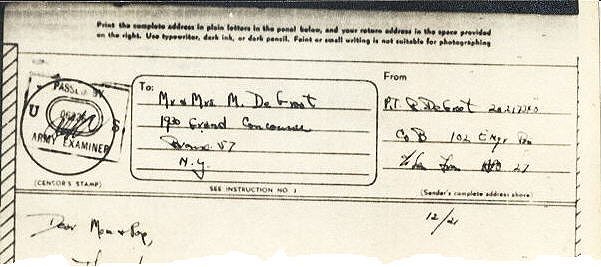 Print the complete address in plain letters in the panel below, and your return address in the space provided
on the right. Use typewriter, dark ink, or dark pencil. Faint or small writing is not suitable for photographing
PASSED BY
U S
ARMY EXAMINER
(CENSOR'S STAMP)
To:
Mr & Mrs. M. De Groot
1930 Grand Concourse
Bronx 57
N.Y.
SEE INSTRUCTION NO. 1
From
PVT. De Groot
Co B 102 Engr Bn
(Sender's complete address above)
12/21
Dear Mom & Pop,